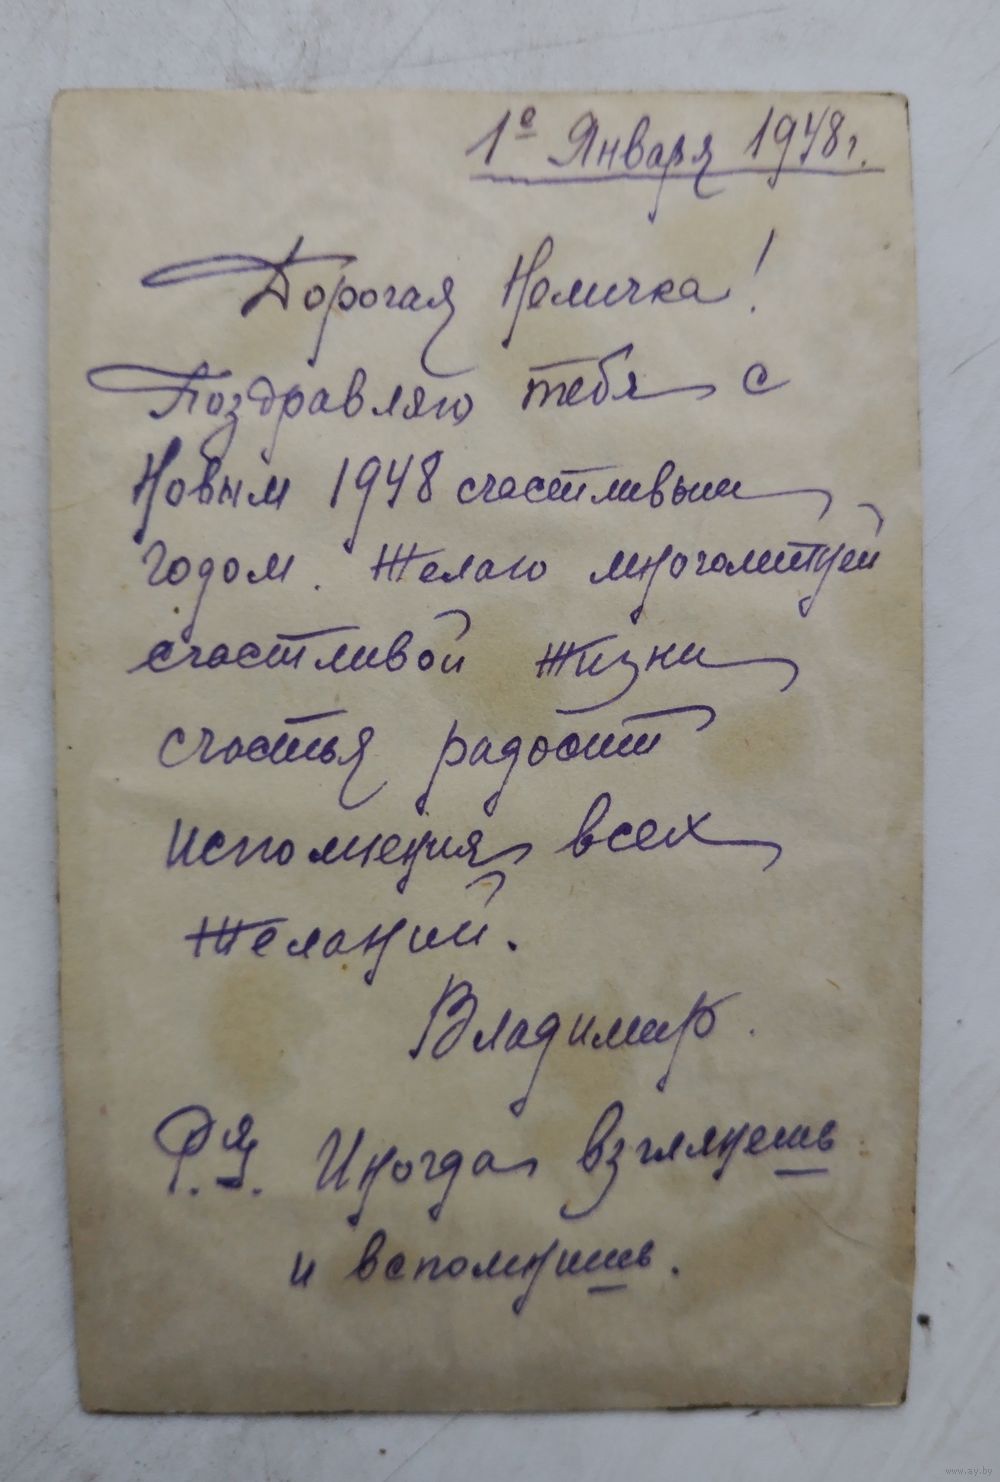 1е Января 1948 г.
Дорогая Неличка!
Поздравляю тебя с
Новым 1948 счастливым
годом. Желаю многолетней
счастливой жизни
счастья радости
исполнения всех
желаний.
Владимир.
Р.Я. Иногда взглянешь
и вспомнишь.
www.ay.by